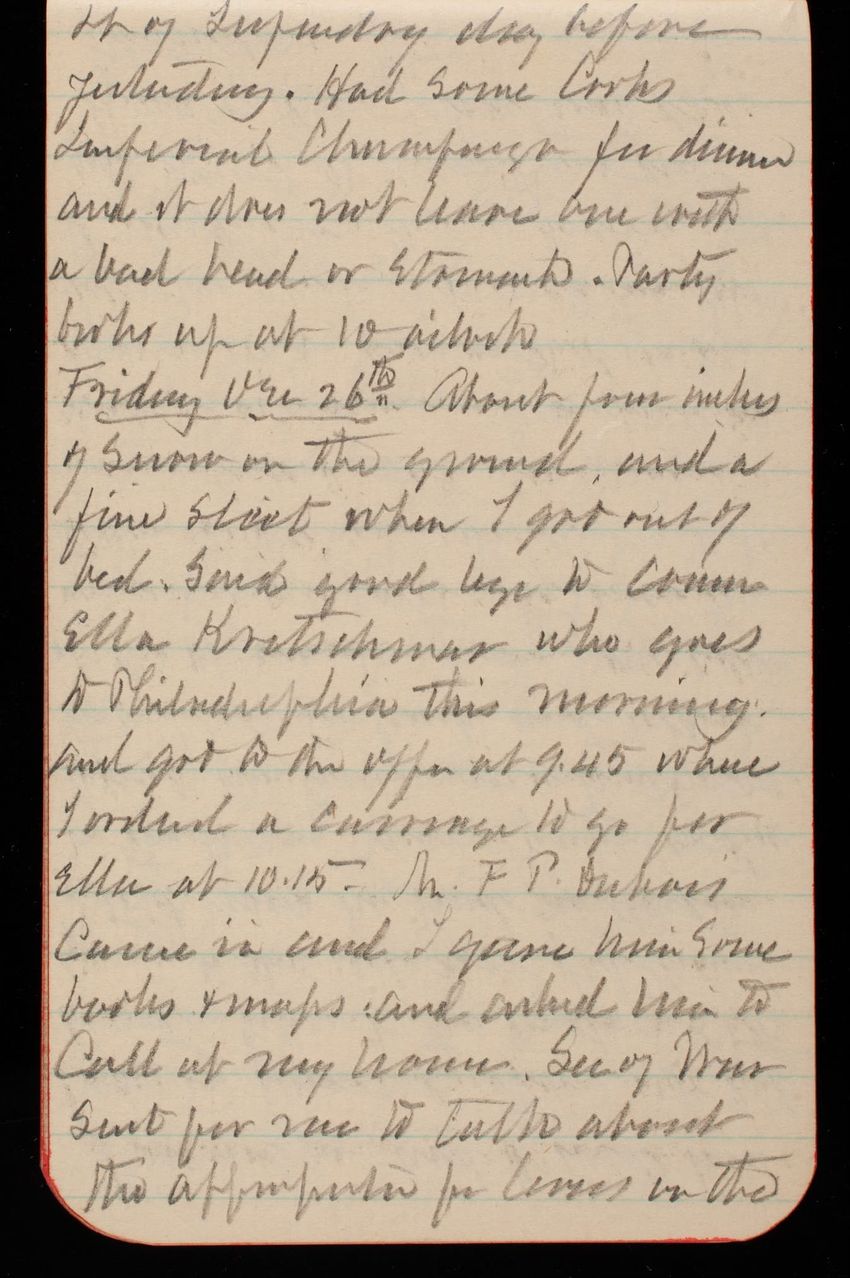 of day before
yesterday. Had some Cooks
Imperial Champaign for dinner
and it does not leave one with
a bad head or stomach. Party
broke up at 10 oclock
Friday Dec 26th. About four inches
of snow on the ground, and a
fine sleet when I got out of
bed. Said good bye to Cousin
Ella Kretschmar who goes
to Philadelphia this morning.
and got to the office at 9.45 where
I ordered a carriage to go for
Ella at 10.15. Mr. F P. Dubois
Came in and I gave him some
books & maps. and asked him to
Call at my house. Sec of War
Sent for me to talk about
the appropriation for levees on the